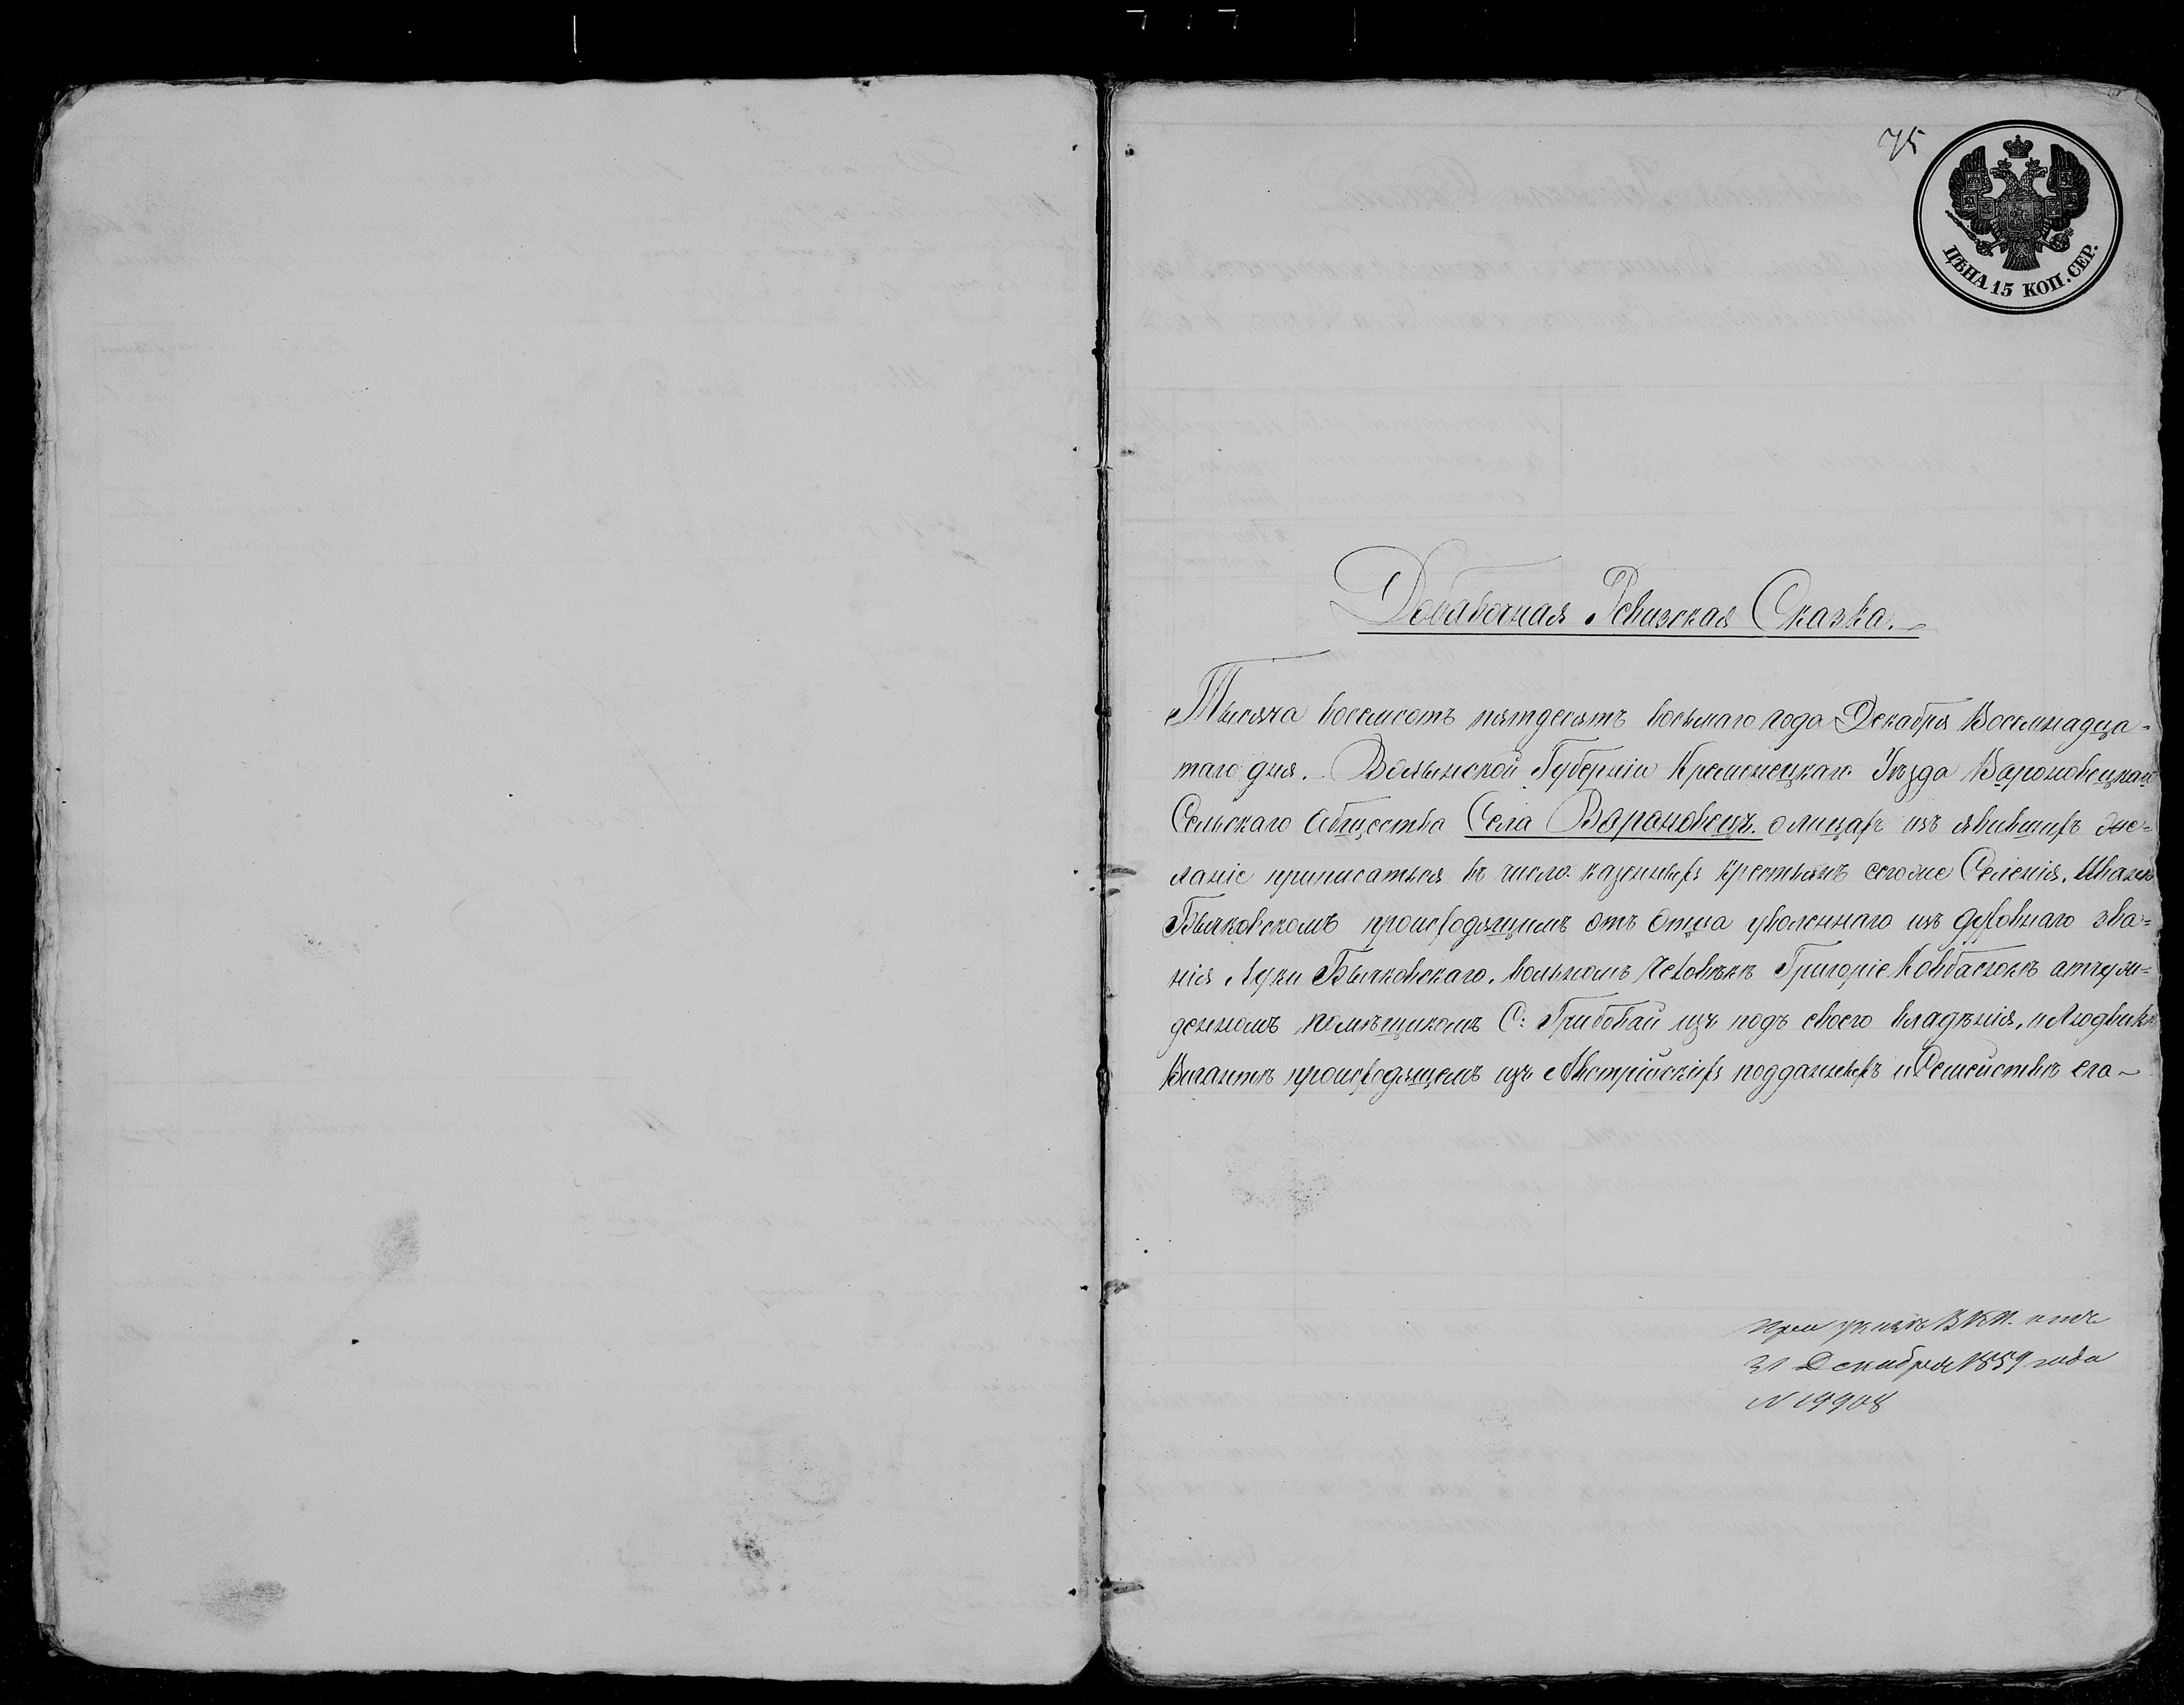 75
ЦѢНА 15 КОП. СЕР.
Добавочная Ревизская Сказка.
Тысяча восемсотъ пятдесятъ восьмаго года Декабря Восемнадца=
таго дня. Волынской Губерніи Кременецкаго Уѣзда Вароновецкаго
Сельскаго Общества Села Вороновецъ. о лицахъ изъ явившихъ же=
ланіе приписаться въ число казенныхъ крестьянъ сегоже Селенія, Иванѣ
Бычковскомъ происходящимъ отъ Отца уволеннаго изъ духовнаго зва=
нія Луки Бычковскаго, вольномъ человѣкѣ Григоріе отчуж=
денномъ помѣщикомъ С: изъ подъ своего владѣнія, и Людвикѣ
происходящемъ изъ Австрійскихъ подданныхъ и Семействѣ его
При указѣ В. К. П. отъ
31 Декабря 1859 года
N 19908